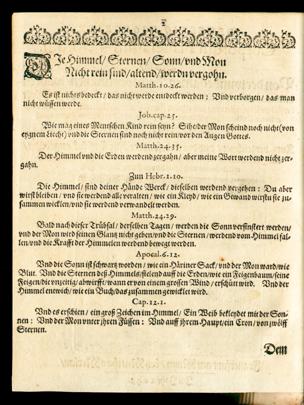 2
DIe Himmel / Sternen / Sonn / vnd Mon
Nicht rein sind / altend / werdn vergohn.
Matth. 10. 26.
Es ist nichts bedeckt / das nicht werde entdeckt werden : Vnd verborgen / das man
nicht wüssen werde.
Job. cap. 25.
Wie mag eines Menschen Kind rein seyn? Sihe der Mon scheind noch nicht / (von
eygnem Liecht) vnd die Sternen sind noch nicht rein vor den Augen Gottes.
Matth. 24. 35.
Der Himmel vnd die Erden werdend zergahn / aber meine Wort werdend nicht zer-
gahn.
Zun Hebr. 1. 10.
Die Himmel / sind deiner Hände Werck / dieselben werdend vergehen : Du aber
wirst bleiben / vnd sie werdend alle veralten / wie ein Kleyd / wie ein Gewand wirst du sie zu-
samen wicklen / vnd sie werdend verwandelt werden.
Matth. 24. 29.
Bald nach diser Trübsal / derselben Tagen / werden die Sonn verfinstert werden /
vnd der Mon wird seinen Glantz nicht geben / vnd die Sternen / werdend vom Himmel fal-
len / vnd die Krafft der Himmelen werdend bewegt werden.
Apocal. 6. 12.
Vnd die Sonn ist schwartz worden / wie ein Häriner Sack / vnd der Mon ward / wie
Blut. Vnd die Sternen deß Himmels / fielend auff die Erden / wie ein Feigenbaum / seine
Feigen / die vnzeitig / abwirfft / wann er von einem grossen Wind / erschütt wird. Vnd der
Himmel entwich / wie ein Buch / das zusamen gewicklet wird.
Cap. 12. 1.
Vnd es erschien / ein groß Zeichen im Himmel / Ein Weib bekleydt mit der Son-
nen : Vnd der Mon vnter ihren Füssen : Vnd auff ihrem Haupt / ein Cron / von zwölff
Sternen.
Dem